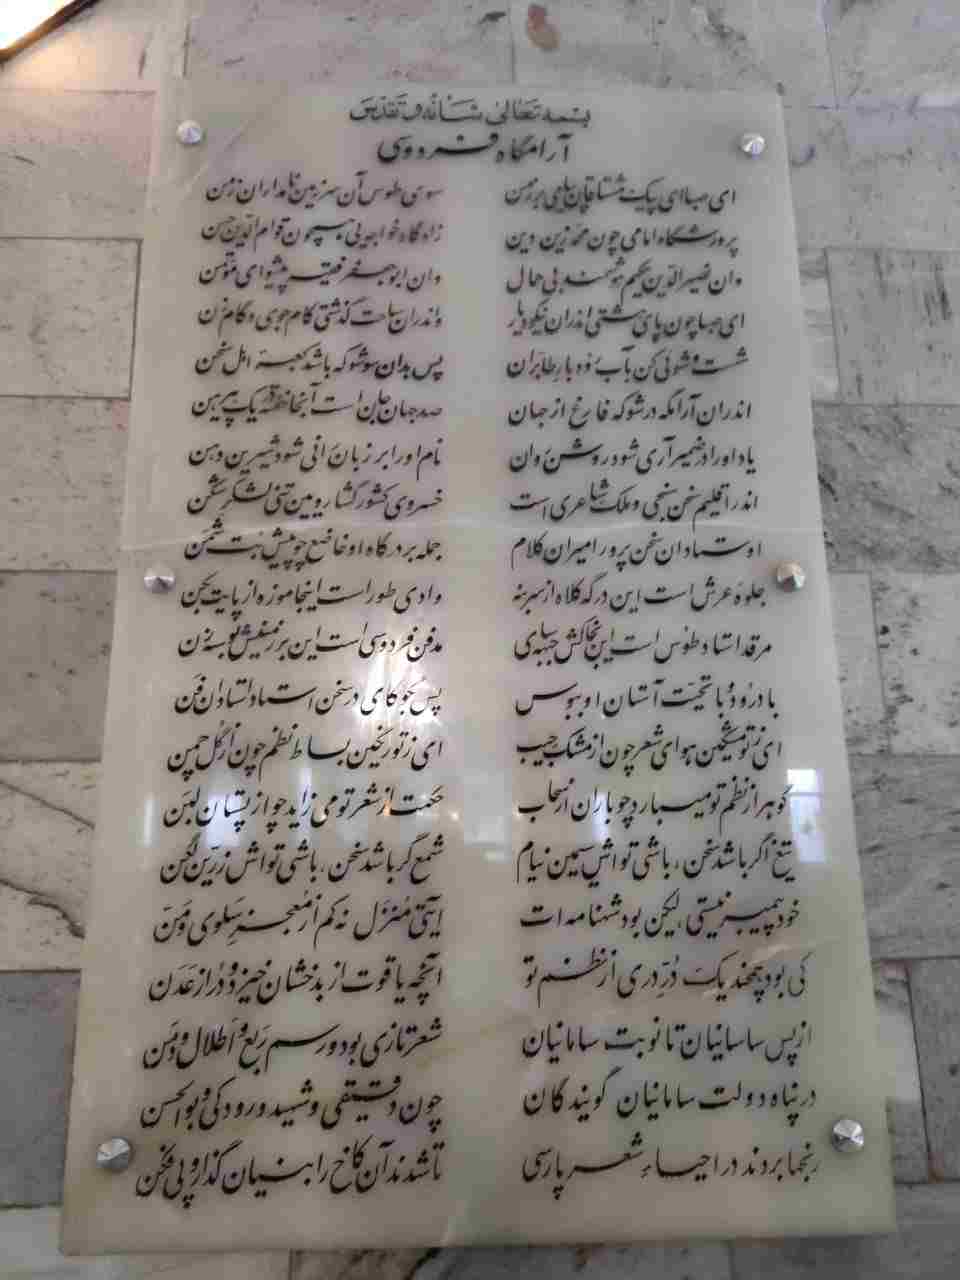 بنمه تعالی شانه و تقدس
آرامگاه فردوسی
ای صبا ای پیک مشتاقان پیامی بر ز من سوی طوس آن سرزمین نامداران زمن
پرورشگاه امامی چون محمد زین دین زادگاه خواجه‌یی همچون قوام الدین حسن
وان نصیرالدین حکیم هوشمند بی همال وان ابوجعفر فقیه پیشوای مؤتمن
ای صبا چون پای هشتی اندران نیکو دیار واندران ساحت گذشتی کام جوی و گام زن
شست و شوئی کن بآب رود بار طابران پس بدان سو شو که باشد کعبهٔ اهل سخن
اندران آرامگه در شو که فارغ از جهان صد جهان جان است آنجا خفته در یک پیرهن
یاد او را در ضمیر آری شود روشن روان نام او را بر زبان رانی شود شیرین دهن
اندر اقلیم سخن سنجی و ملک شاعری است خسروی کشور گشا رویین تنی لشکر شکن
اوستادان سخن پرور امیران کلام جمله بر درگاه او خاضع چو پیش بت شمن
جلوهٔ عرش است این درگه کلاه از سر بنه وادی طور است اینجا موزه از پایت بکن
مرقد استاد طوس است این بخاکش جبهه سای مدفن فردوسی است این بر زمینش بوسه زن
با درود و با تحیت آستان او ببوس پس بگو کای در سخن استاد استادان فن
ای ز تو مشکین هوای شعر چون از مشک جیب ای ز تو رنگین بساط نظم چون از گل چمن
گوهر از نظم تو میبارد چو باران از سحاب حکمت از شعر تو می زاید چو از پستان لبن
تیغ اگر باشد سخن، باشی تو اش سیمین نیام شمع گر باشد سخن، باشی تو اش زرین لگن
خود پیمبر نیستی، لیکن بود شهنامه ات آیتی مُنزَل نه کم از مُعجزِ سَلوی و مَنّ
کی بود همچند یک دُرِّ دری از نظم تو آنچه یاقوت از بدخشان خیزد و دُر از عَدَن
از پس ساسانیان تا نوبت سامانیان شعر تازی بود و رسم رَبع و اَطلال و دِمَن
در پناه دولت سامانیان گویندگان چون دقیقی و شهید و رودکی و بوالحسن
رنجها بردند در احیاءِ شعر پارسی تا شدند آن کاخ را بنیان گذار و پی فکن